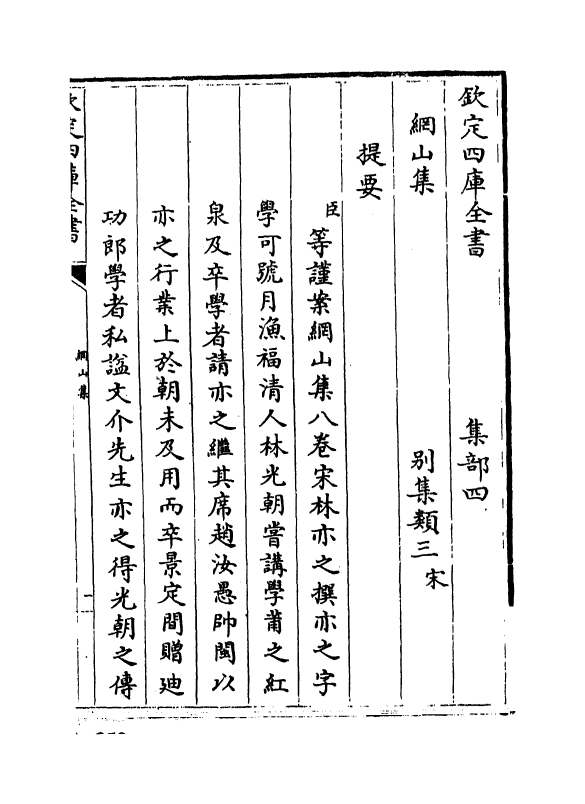 欽定四庫全書　　　　集部四
網山集　　　　　　　別集類三宋
提要
臣等謹案網山集八卷宋林亦之撰亦之字
學可號月漁福清人林光朝嘗講學莆之紅
泉及卒學者請亦之繼其席趙汝愚帥閩以
亦之行業上於朝未及用而卒景定間贈廸
功郎學者私諡文介先生亦之得光朝之傳
欽定四庫全書
網山集
一